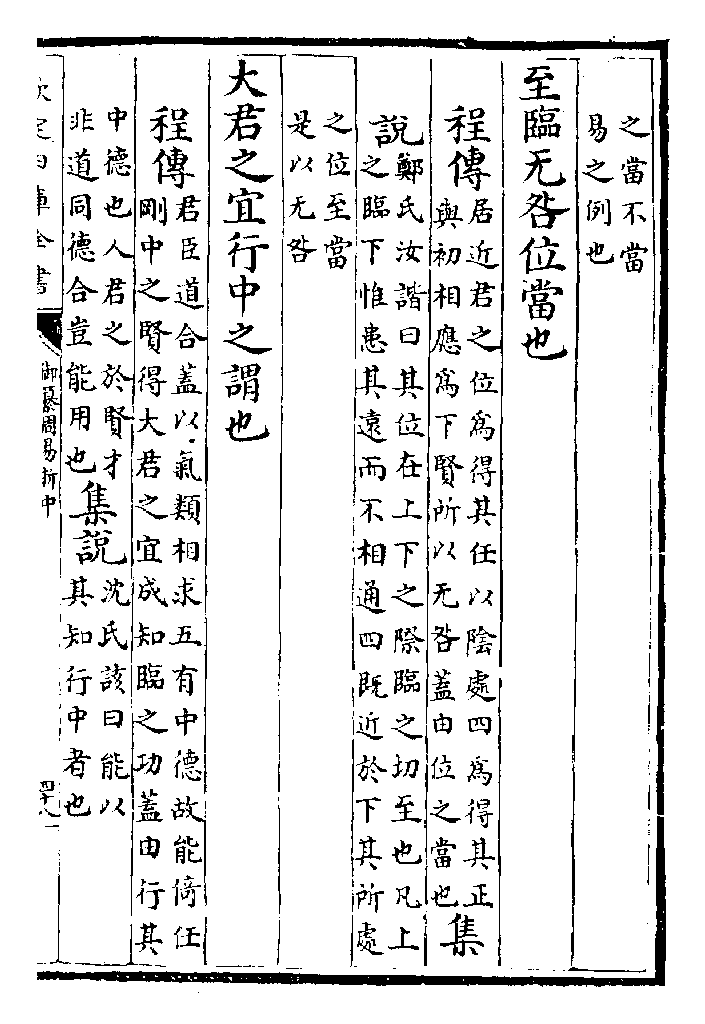 之當不當
易之例也
至臨无咎位當也
程傳居近君之位為得其任以陰處四為得其正
與初相應為下賢所以无咎蓋由位之當也集
說鄭氏汝諧曰其位在上下之際臨之切至也凡上
之臨下惟患其遠而不相通四既近於下其所處
之位至當
是以无咎
大君之宜行中之謂也
程傳君臣道合蓋以氣類相求五有中德故能倚任
剛中之賢得大君之宜成知臨之功蓋由行其
中德也人君之於賢才
非道同德合豈能用也集說沈氏該曰能以
其知行中者也
欽定四庫全書
御纂周易折中
四十八